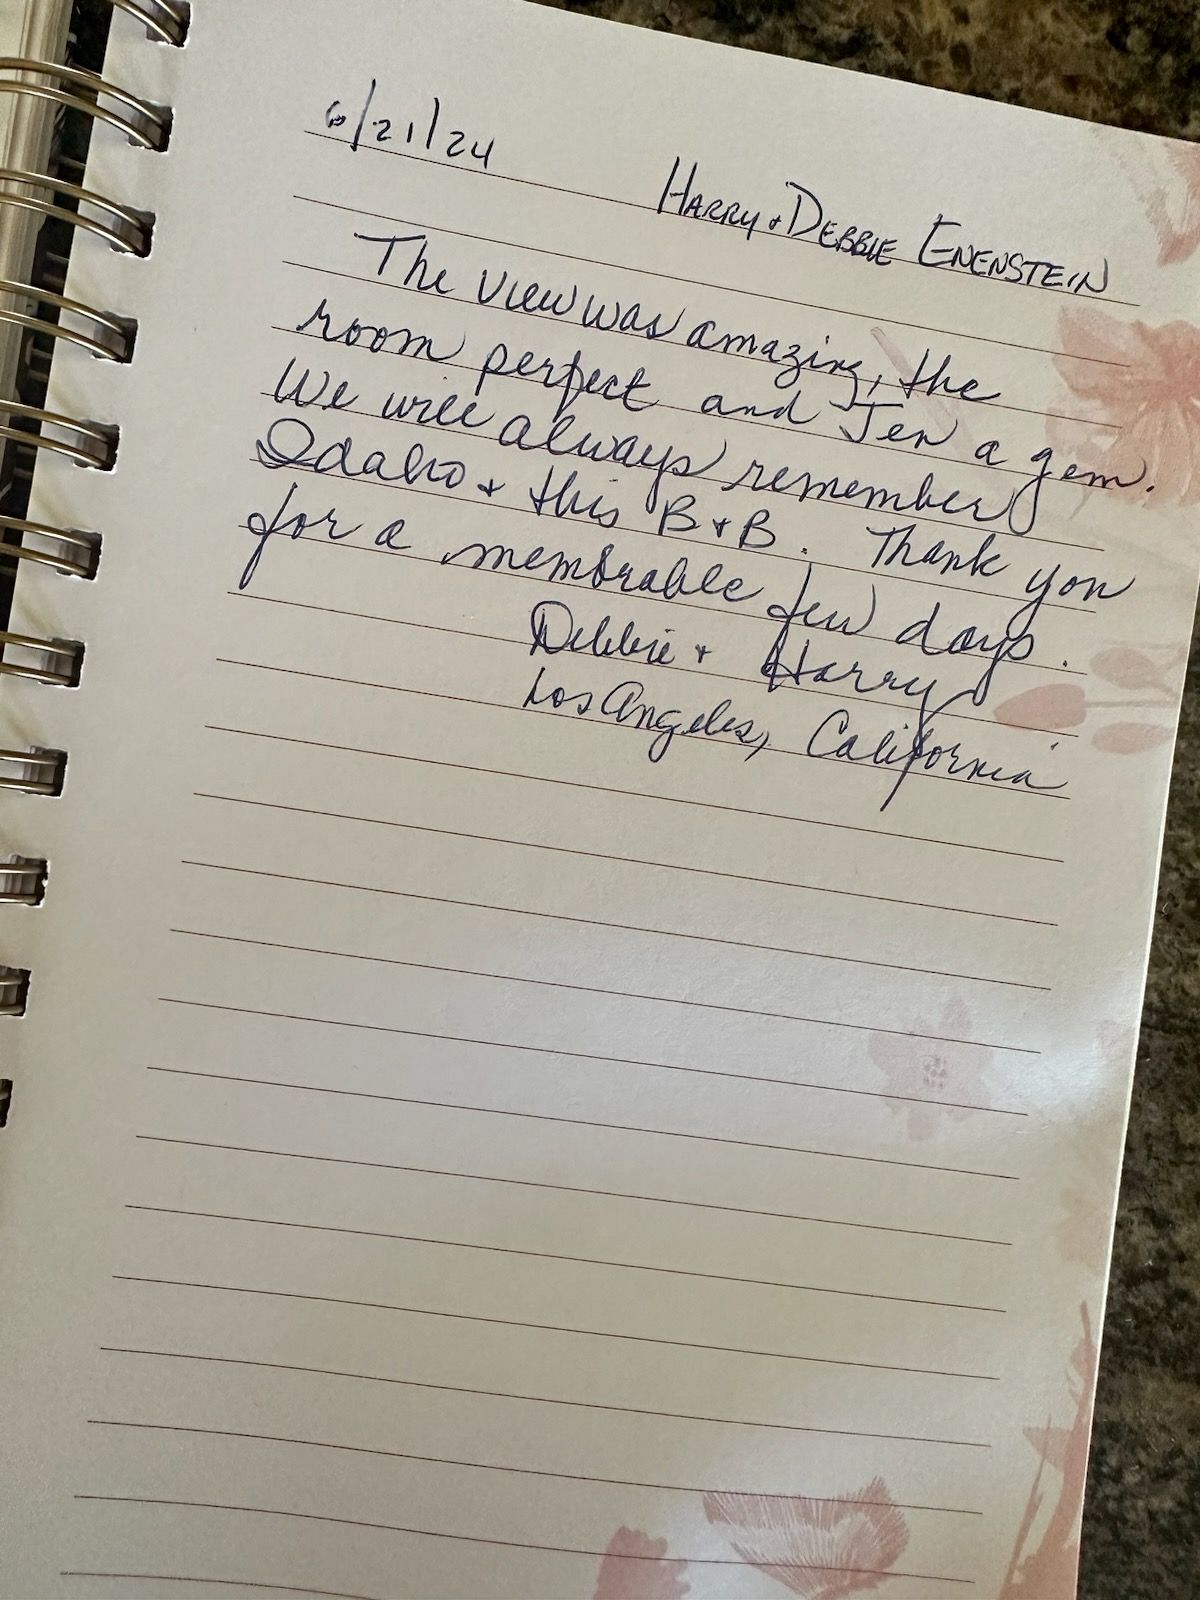 6/21/24
HARRY + DEBBIE ENENSTEIN
The view was amazing, the
room perfect and Jen a gem.
We will always remember
Idaho + this B + B. Thank you
for a memorable few days.
Debbie + Harry
Los Angeles, California